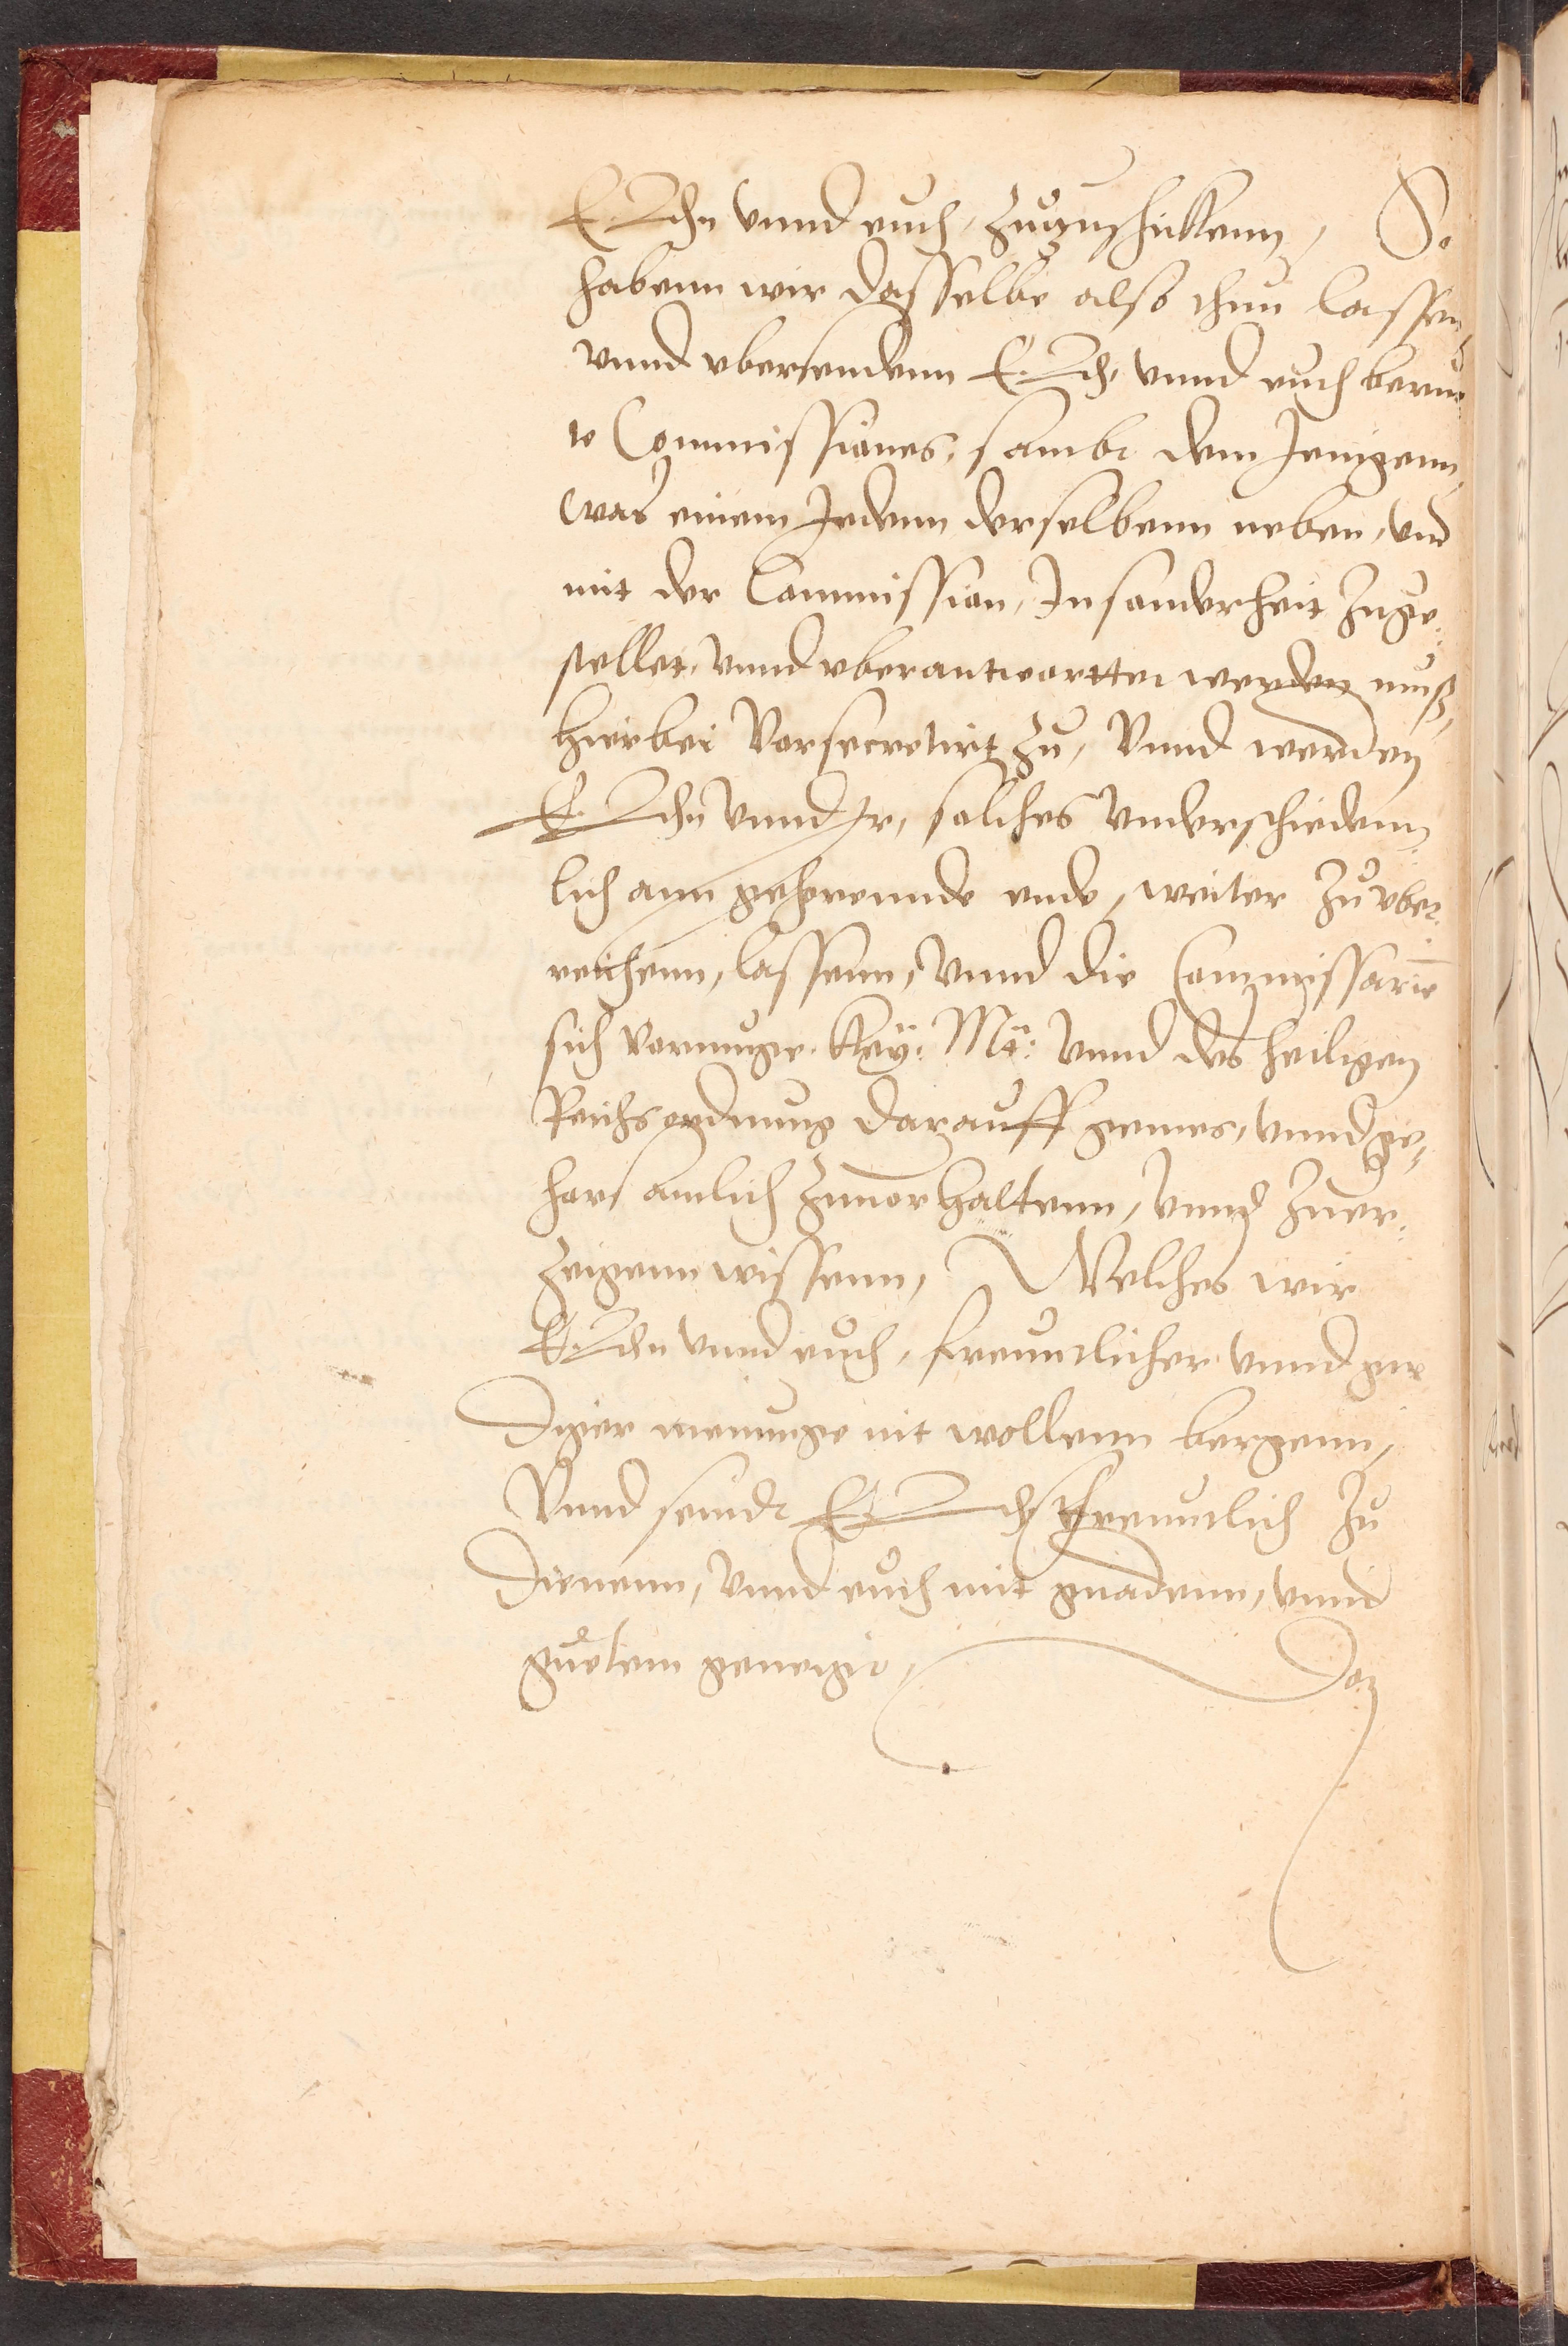 E. Lden vnnd euch, zuzuschickenn, So
habenn wir dasselbe also thun lassen
vnnd vbersendenn E. Ld. vnnd euch berur
te Commissiones, sambt dem Jenigenn
was einem Jedenn derselbenn neben, vnd
mit der Commission, Jn sonderheit zuge¬
stellet, vnnd vberantwortten werden muß,
hierbei Vorsecretirt zu, Vnnd werden
E. Lden vnnd Jr, solches vnderschiedenn
lich ann geherennde ende, weiter zu vber¬
reichenn, lassenn, vnnd die Commissarien
sich vormuge Key: Mt: vnnd des heiligen
Reichs ordnung darauff gemes, vnnd ge¬
horsamlich zuuorhaltenn, vnnd zuer¬
zeigenn wissenn, Welches wir
E. Lden vnnd euch, freuntlicher vnnd gne
diger meinunge nit wollenn bergenn,
Vnnd seindt E. Ld. freuntlich zu
dienenn, vnnd euch mit gnadenn, vnnd
guetem geneigt, Da